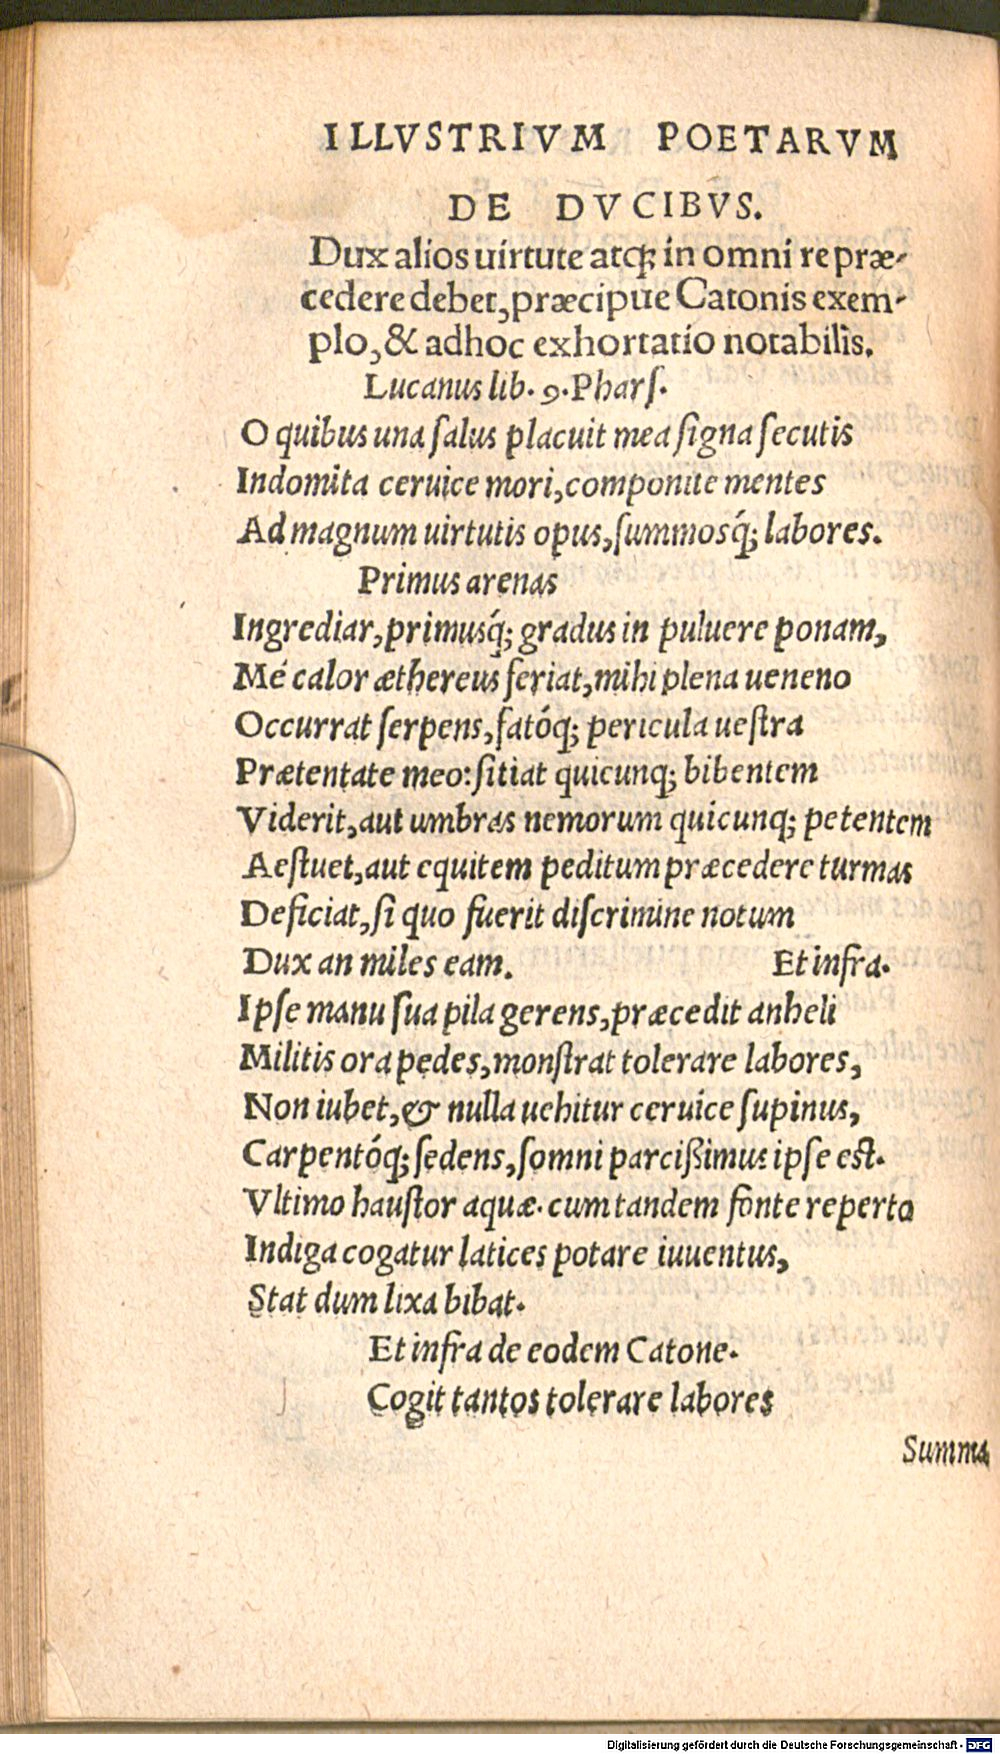 ILLVSTRIVM POETARVM
DE DVCIBVS.
Dux alios uirtute atq; in omni re præ-
cedere debet, præcipue Catonis exem-
plo, & adhoc exhortatio notabilis.
Lucanus lib. 9. Pharſ.
O quibus una ſalus placuit mea ſigna ſecutis
Indomita ceruice mori, componite mentes
Ad magnum uirtutis opus, ſummosq́; labores.
Primus arenas
Ingrediar, primusq́; gradus in puluere ponam,
Mé calor æthereus feriat, mihi plena ueneno
Occurrat ſerpens, fatóq; pericula ueſtra
Prætentate meo: ſitiat quicunq; bibentem
Viderit, aut umbras nemorum quicunq; petentem
Aeſtuet, aut equitem peditum præcedere turmas
Deficiat, ſi quo fuerit diſcrimine notum
Dux an miles eam. Et infra.
Ipſe manu ſua pila gerens, præcedit anheli
Militis ora pedes, monſtrat tolerare labores,
Non iubet, & nulla uehitur ceruice ſupinus,
Carpentóq; ſedens, ſomni parcißimus ipſe eſt.
Vltimo hauſtor aquæ. cum tandem fonte reperto
Indiga cogatur latices potare iuuentus,
Stat dum lixa bibat.
Et infra de eodem Catone.
Cogit tantos tolerare labores
Summa
Digitalisierung gefördert durch die Deutsche Forschungsgemeinschaft - DFG